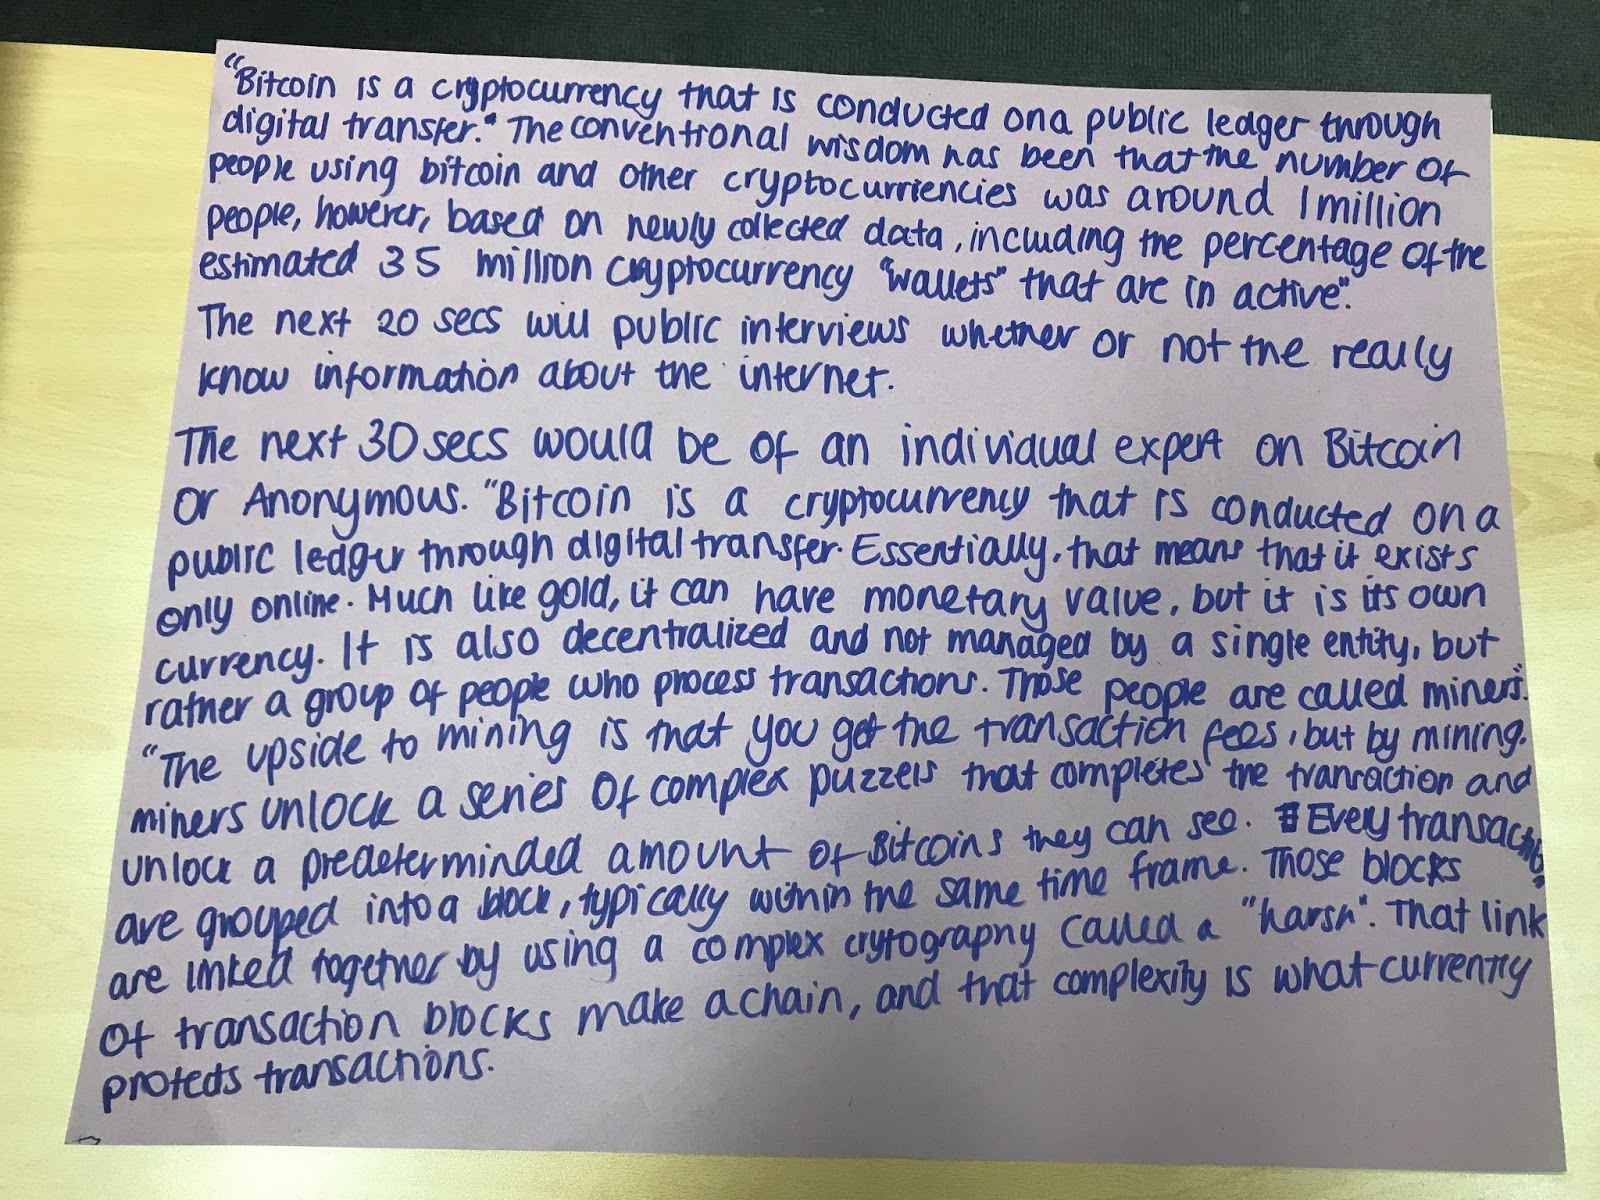 "Bitcoin is a cryptocurrency that is conducted on a public ledger through
digital transfer." The conventional wisdom has been that the number of
people using bitcoin and other cryptocurriencies was around 1 million
people, however, based on newly collected data, including the percentage of the
estimated 35 million cryptocurrency "wallets" that are in active".
The next 20 secs will public interviews whether or not the really
know information about the internet.
The next 30 secs would be of an individual expert on Bitcoin
or Anonymous. "Bitcoin is a cryptocurrency that is conducted on a
public ledger through digital transfer. Essentially, that means that it exists
only online. Much like gold, it can have monetary value, but it is its own
currency. It is also decentralized and not managed by a single entity, but
rather a group of people who process transactions. Those people are called miners".
"The upside to mining is that you get the transaction fees, but by mining.
miners unlock a series of complex puzzels that completes the transaction and
unlock a predeterminded amount of Bitcoins they can see. Every transactions
are grouped into a block, typically within the same time frame. Those blocks
are linked together by using a complex crytography called a "harsh". That link
of transaction blocks make a chain, and that complexity is what currently
protects transactions.